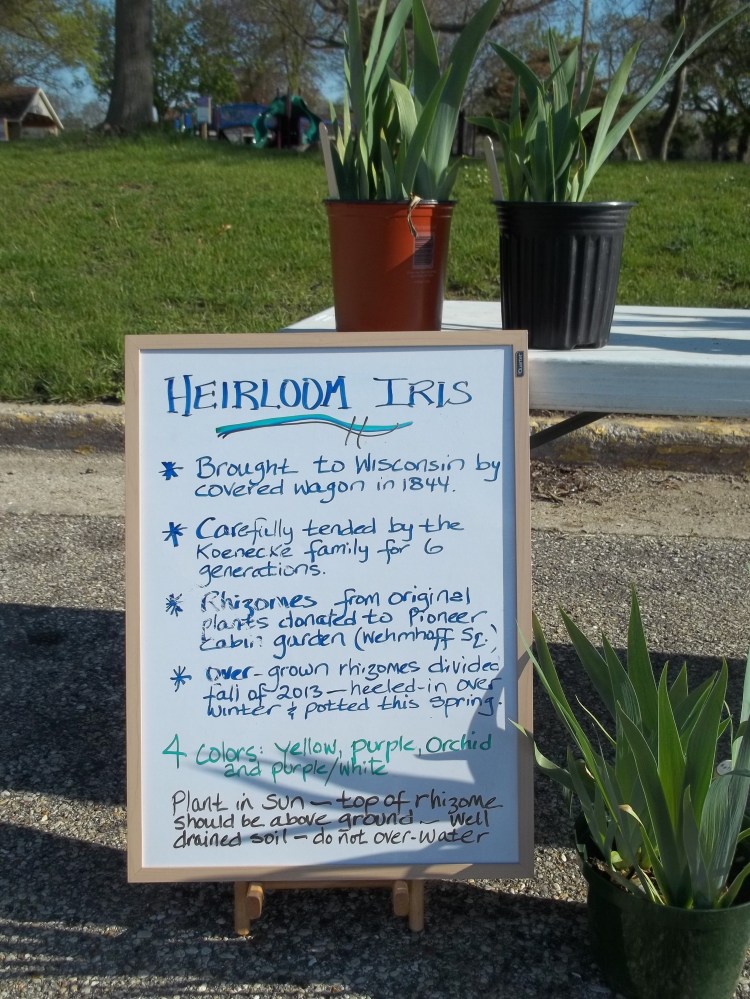 HEIRLOOM IRIS
* Brought to Wisconsin by
covered wagon in 1844.
* Carefully tended by the
Koenecke family for 6
generations.
* Rhizomes from original
plants donated to Pioneer
Cabin garden (Wehmhoff Sq.)
* Over-grown rhizomes divided
fall of 2013 — heeled-in over
winter & potted this spring.
4 colors: yellow, purple, Orchid
and purple/white
Plant in Sun — top of rhizome
should be above ground — well
drained soil — do not over-water